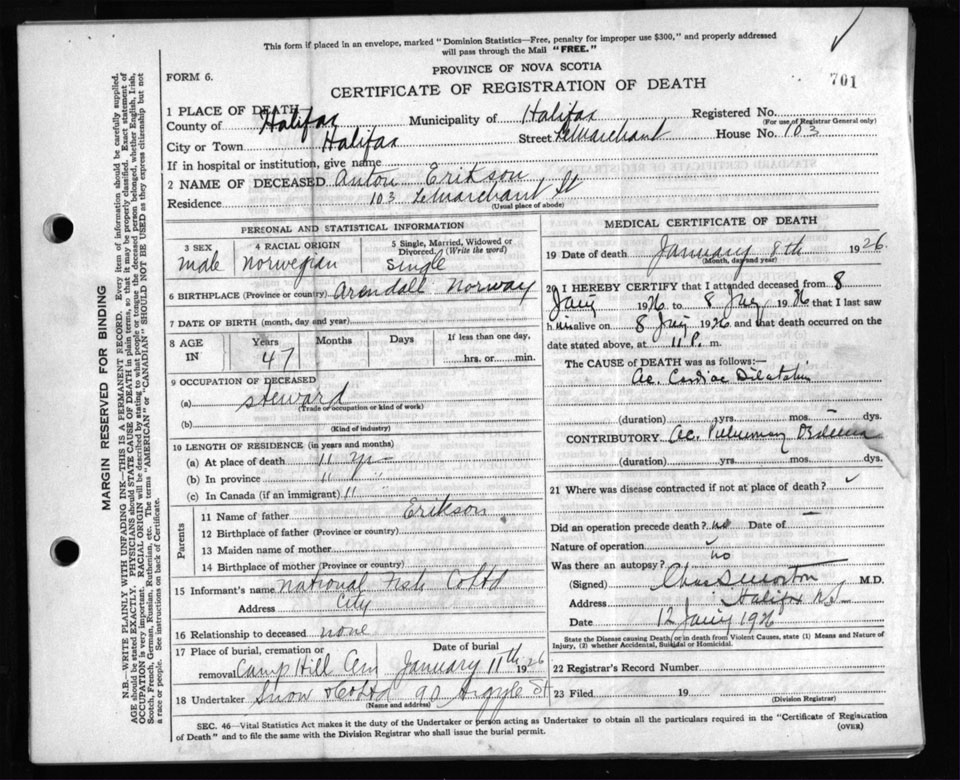 This form if placed in an envelope, marked "Dominion Statistics—Free, penalty for improper use $300," and properly addressed
will pass through the Mail "FREE."
PROVINCE OF NOVA SCOTIA
FORM 6.
CERTIFICATE OF REGISTRATION OF DEATH
701
1 PLACE OF DEATH
County of Halifax Municipality of Halifax Registered No.
(For use of Registrar General only)
City or Town Halifax Street LeMarchant House No. 103
If in hospital or institution, give name
2 NAME OF DECEASED Anton Erikson
Residence 103 LeMarchant St
(Usual place of abode)
PERSONAL AND STATISTICAL INFORMATION
3 SEX male
4 RACIAL ORIGIN Norwegian
5 Single, Married, Widowed or
Divorced. (Write the word)
Single
6 BIRTHPLACE (Province or country) Arendall Norway
7 DATE OF BIRTH (month, day and year)
8 AGE IN Years 47 Months Days If less than one day,
hrs. or min.
9 OCCUPATION OF DECEASED
(a) steward
(Trade or occupation or kind of work)
(b)
(Kind of industry)
10 LENGTH OF RESIDENCE (in years and months)
(a) At place of death 11 yr
(b) In province 11 "
(c) In Canada (if an immigrant) 11 "
Parents
11 Name of father Erikson
12 Birthplace of father (Province or country)
13 Maiden name of mother
14 Birthplace of mother (Province or country)
15 Informant's name National Fish Co Ltd
Address City
16 Relationship to deceased none
17 Place of burial, cremation or
removal Camp Hill Cem
Date of burial
January 11th 1926
18 Undertaker Snow & Co Ltd 90 Argyle St
(Name and address)
MEDICAL CERTIFICATE OF DEATH
19 Date of death January 8th 1926.
(Month, day and year)
20 I HEREBY CERTIFY that I attended deceased from 8
Jany 1926 to 8 Jany 1926 that I last saw
him alive on 8 Jany 1926 and that death occurred on the
date stated above, at 11 P. m.
The CAUSE of DEATH was as follows:—
Ac. Cardiac Dilatation
(duration) yrs. mos. dys.
CONTRIBUTORY Ac. Pulmonary Oedema
(duration) yrs. mos. dys.
21 Where was disease contracted if not at place of death?
Did an operation precede death? no Date of —
Nature of operation
Was there an autopsy? no
(Signed) Chas S Morton M.D.
Address Halifax N.S.
Date 12 Jany 1926
State the Disease causing Death, or in death from Violent Causes, state (1) Means and Nature of
Injury, (2) whether Accidental, Suicidal or Homicidal.
22 Registrar's Record Number
23 Filed 19
(Division Registrar)
SEC. 46—Vital Statistics Act makes it the duty of the Undertaker or person acting as Undertaker to obtain all the particulars required in the "Certificate of Registration
of Death" and to file the same with the Division Registrar who shall issue the burial permit.
(OVER)
MARGIN RESERVED FOR BINDING
N.B.—WRITE PLAINLY WITH UNFADING INK—THIS IS A PERMANENT RECORD. Every item of information should be carefully supplied.
AGE should be stated EXACTLY. PHYSICIANS should STATE CAUSE OF DEATH in plain terms, so that it may be properly classified. Exact statement of
OCCUPATION is very important. RACIAL ORIGIN will be described by stating to what people or tongue the deceased person belonged, whether English, Irish,
Scotch, French, German, Russian, Ruthenian, etc. The terms "AMERICAN" or "CANADIAN" SHOULD NOT BE USED as they express citizenship but not
a race or people. See instructions on back of Certificate.